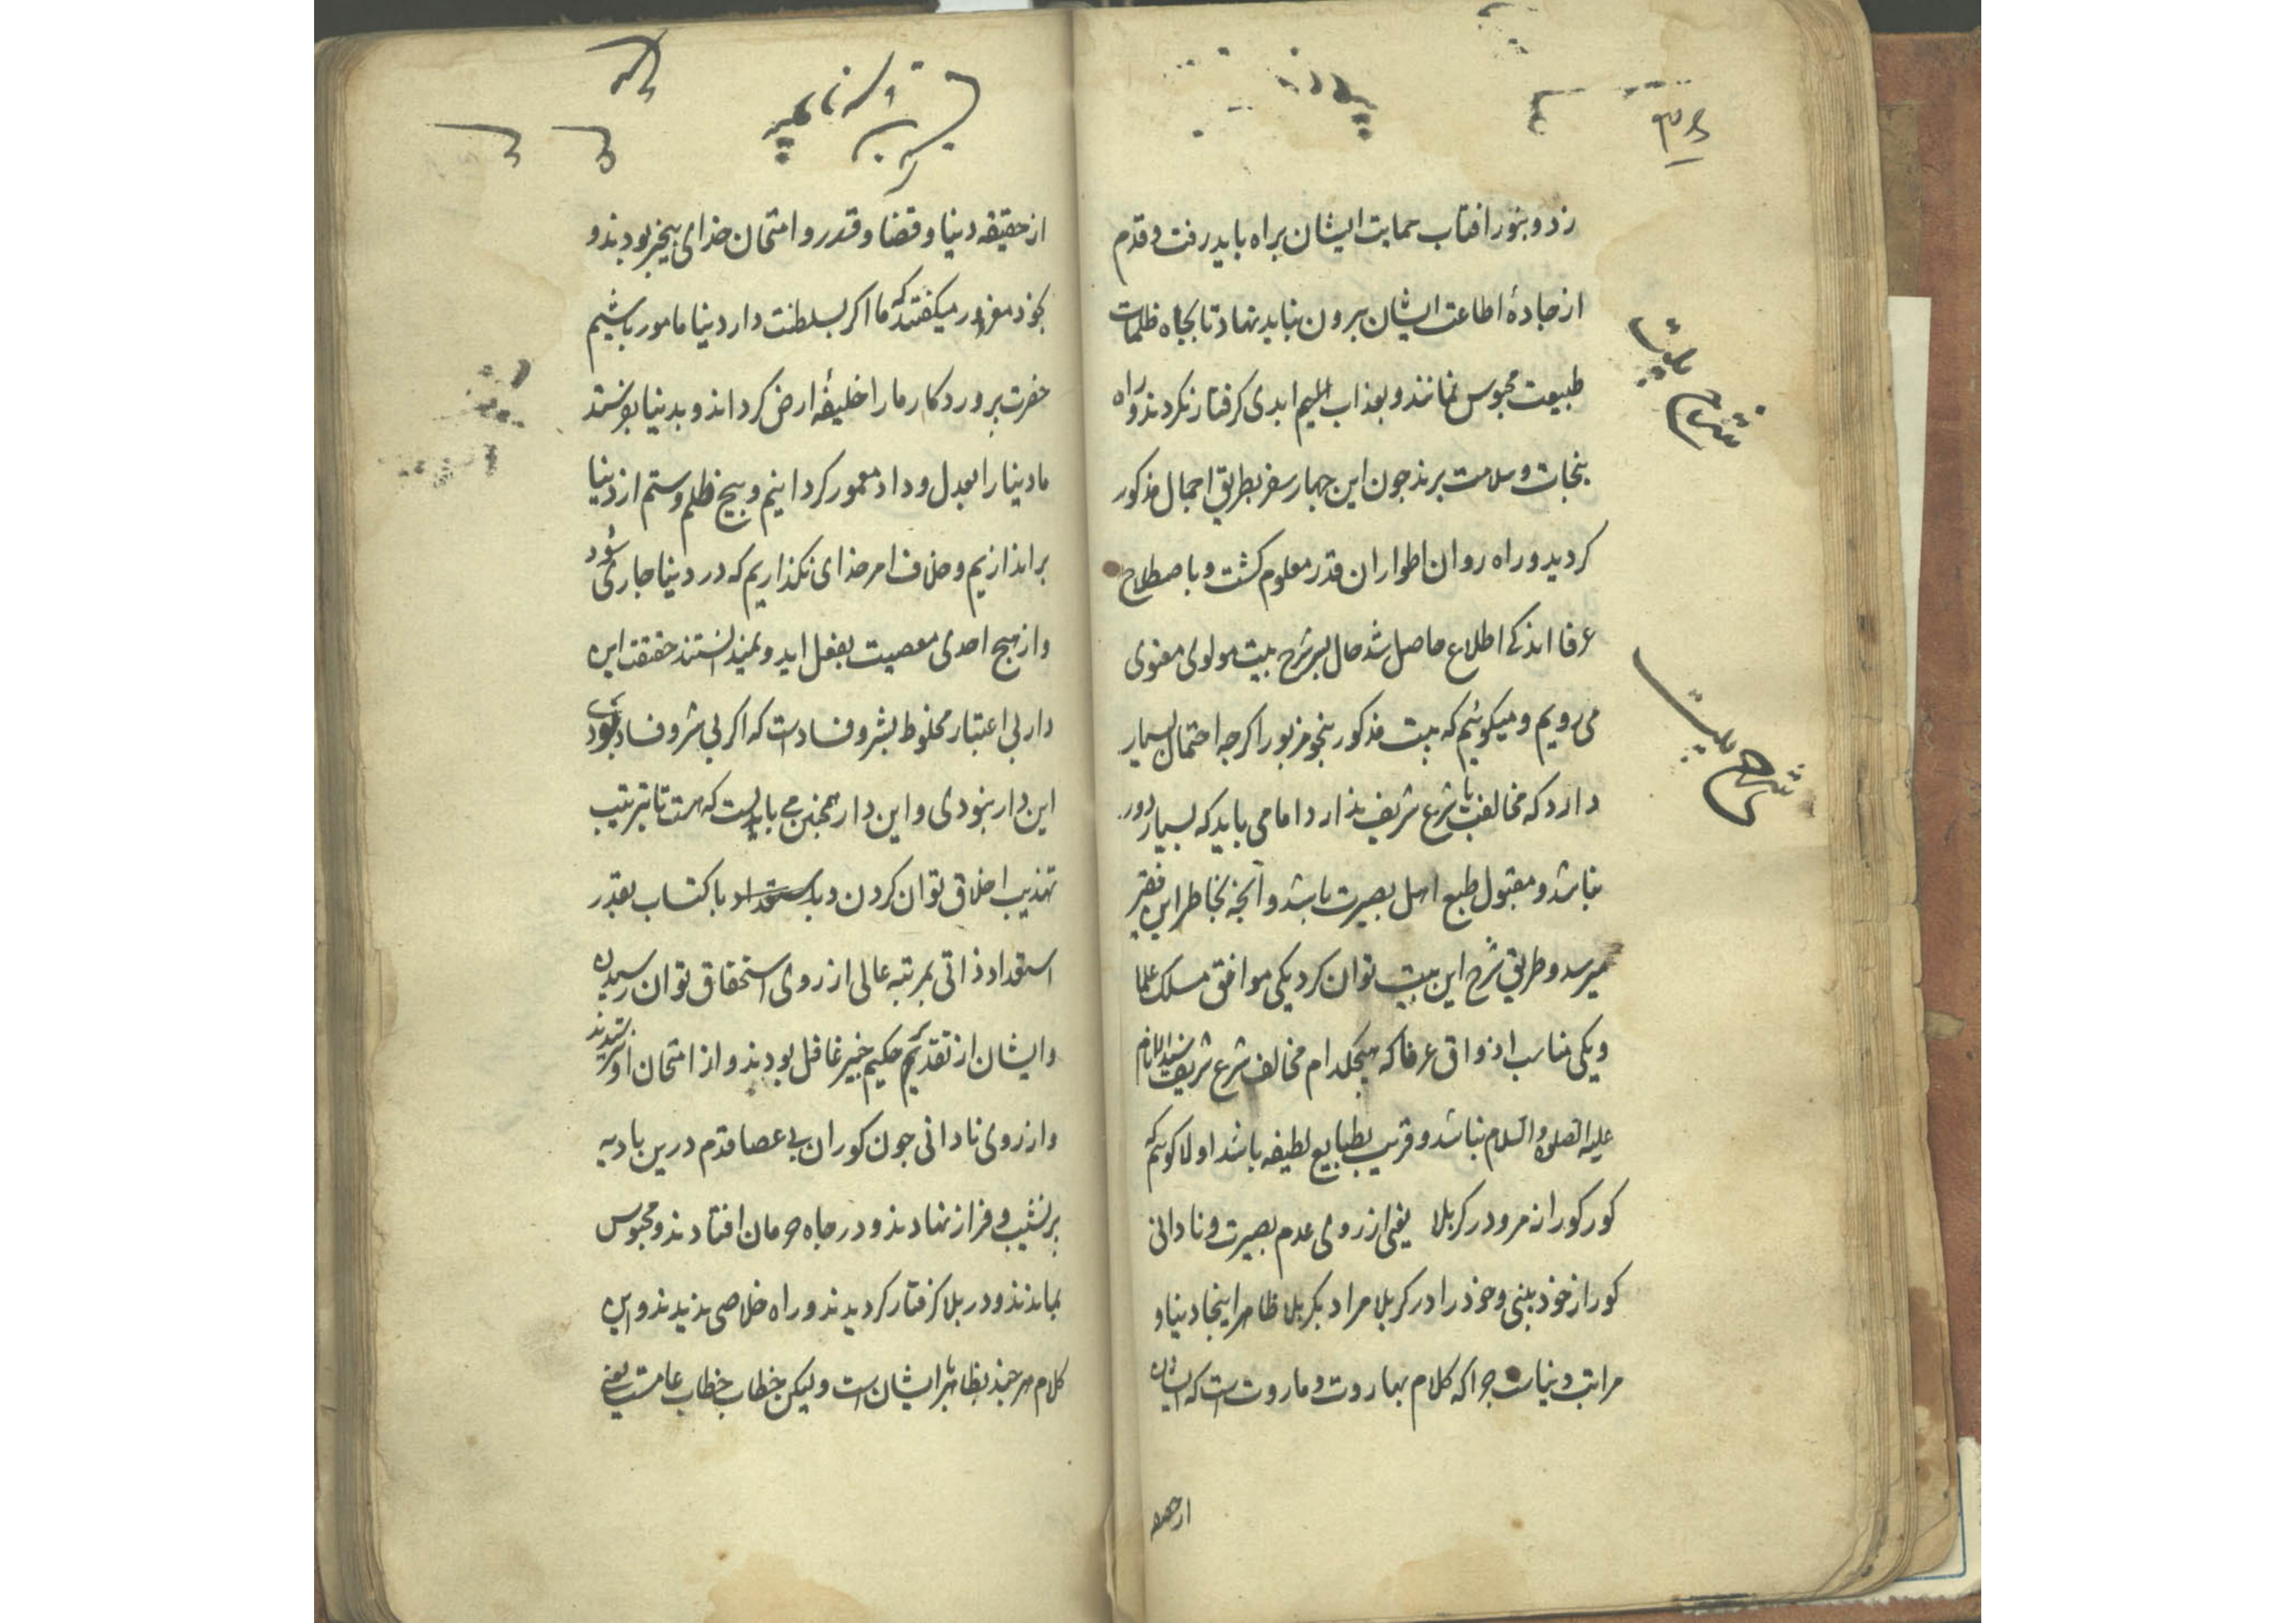 زد و بنور افتاب حمایت ایشان براه باید رفت و قدم
از جادهٔ اطاعت ایشان بیرون نباید نهاد تا بجاه ظلمات
طبیعت محبوس نمانند و بعذاب الیم ابدی کرفتار نکردند و راه
بنجات و سلامت برند جون این جهار سفر بطریق اجمال مذکور
کردید و راه روان اطوار ان قدر معلوم کشت و باصطلاح
عرفا اندکی اطلاع حاصل شد حال بر شرح بیت مولوی معنوی
می رویم و میکوئیم که بیت مذکور بنحو مزبور اکرجه احتمال بسیار
دارد که مخالفت با شرع شریف ندارد اما می باید که بسیار دور
نباشد و مقبول طبع اهل بصیرت باشد و آنجه بخاطر این فقیر
میرسد و طریق شرح این بیت توان کرد یکی موافق مسلک علما
و یکی مناسب اذواق عرفا که هیجکدام مخالف شرع شریف سید الانام
علیه الصلوة والسلام نباشد و قریب بطبایع لطیفه باشد اولا کوئیم که
کور کورانه مرو در کربلا یعنی از روی عدم بصیرت و نادانی
کور از خود بینی و خود را در کربلا مراد بکربلا ظاهرا اینجا دنیا و
مراتب دنیاست جرا که کلام بهاروت و ماروت است که ایشان
از حقیقه
شرح بیت
از حقیقه دنیا و قضا و قدر و امتحان خدای بیخبر بودند و
بخود مغرور میکفتند که ما اکر بسلطنت دار دنیا مامور باشیم
حضرت پروردکار ما را خلیفهٔ ارض کرداند و بدنیا بفرستد
ما دنیا را بعدل و داد معمور کردانیم و بیخ ظلم و ستم از دنیا
براندازیم و خلاف امر خدای نکذاریم که در دنیا جاری شود
و از هیج احدی معصیت بفعل اید و نمیدانستند حقیقت این
دار بی اعتبار مخلوط بشر و فساد است که اکر بی شر و فساد بودی
این دار نبودی و این دار همجنین می بایست که هست تا بترتیب
تهذیب اخلاق توان کردن و باستعداد باکتساب بقدر
استعداد ذاتی بمرتبه عالی از روی استحقاق توان رسیدن
و ایشان از تقدیر حکیم خبیر غافل بودند و از امتحان او نترسیدند
و از روی نادانی جون کوران بی عصا قدم درین بادیه
پر نشیب و فراز نهادند و در جاه حرمان افتادند و محبوس
بماندند و در بلا کرفتار کردیدند و راه خلاصی ندیدند و این
کلام هر جند بظاهر با ایشان است ولیکن خطاب خطاب عامست یعنی